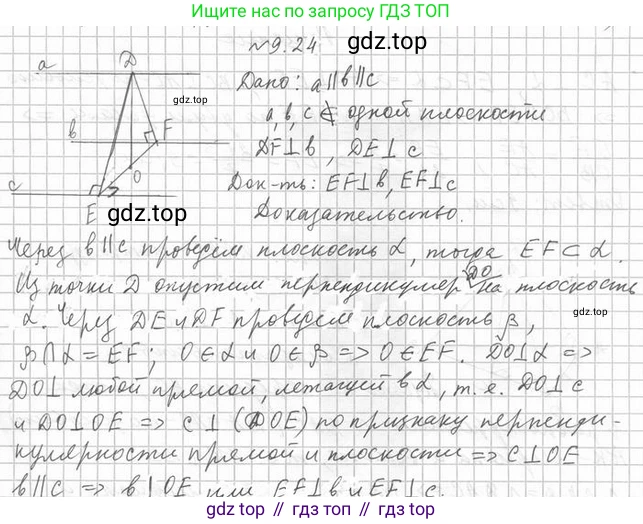 Ищите нас по запросу ГДЗ ТОП
№9.24
gdz.top
D
a
Дано: a∥b∥c
gdz.top
a, b, c ⊄ одной плоскости
b
F
DF⊥b, DE⊥c
O
Док-ть: EF⊥b, EF⊥c
c
E
gdz.top
Доказательство.
Через b∥c проведём плоскость α, тогда EF⊂α.
Из точки D опустим перпендикуляр DO на плоскость
α. Через DE и DF проведем плоскость β,
β∩α = EF; O∈α и O∈β => O∈EF. DO⊥α =>
DO⊥ любой прямой, лежащей в α, т.е. DO⊥c
и DO⊥OE => c⊥(DOE) по признаку перпенди-
кулярности прямой и плоскости => c⊥OE
b∥c => b⊥OE или EF⊥b и EF⊥c.
gdz.top // gdz.top // gdz.top // gdz.top